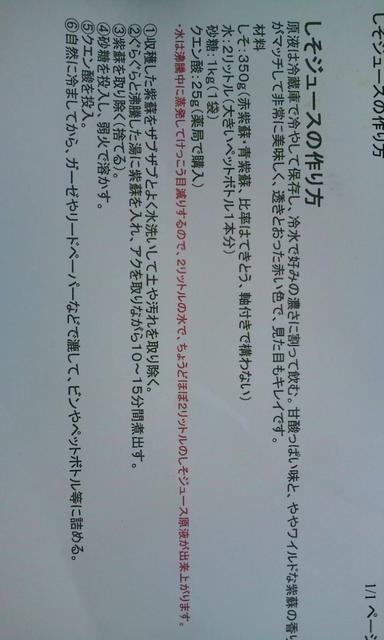 しそジュースの作り方
1/1 ペー
しそジュースの作り方
原液は冷蔵庫で冷やして保存し、冷水で好みの濃さに割って飲む。甘酸っぱい味と、ややワイルドな紫蘇の香り
がマッチして非常に美味しく、透きとおった赤い色で、見た目もキレイです。
材料
しそ:350g(赤紫蘇・青紫蘇、比率はてきとう、軸付きで構わない)
水:2リットル(大きいペットボトル1本分)
砂糖:1kg(1袋)
クエン酸:25g(薬局で購入)
・水は沸騰中に蒸発してけっこう目減りするので、2リットルの水で、ちょうどほぼ2リットルのしそジュース原液が出来上がります。
①収穫した紫蘇をザブザブとよく水洗いして土や汚れを取り除く。
②ぐらぐらと沸騰した湯に紫蘇を入れ、アクを取りながら10～15分間煮出す。
③紫蘇を取り除く(捨てる)。
④砂糖を投入し、弱火で溶かす。
⑤クエン酸を投入。
⑥自然に冷ましてから、ガーゼやリードペーパーなどで漉して、ビンやペットボトル等に詰める。